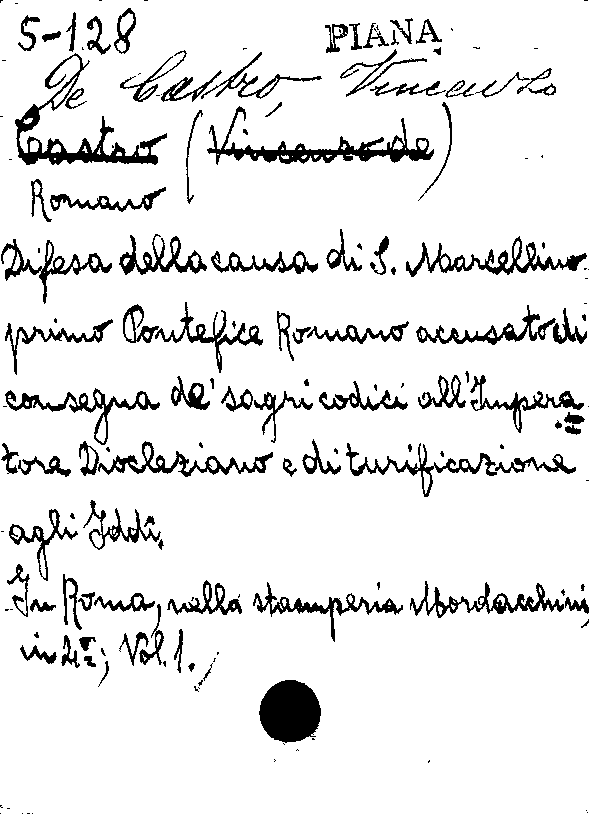 5-128 PIANA
De Castro, Vincenzo
Castro (Vincenzo de)
Romano
Difesa della causa di S. Marcellino
primo Pontefice Romano accusato di
consegna de' sagri codici all'Impera=
tore Diocleziano e di turificazione
agli Iddî.
In Roma, nella stamperia Mordacchini,
in 4º; Vol. 1.